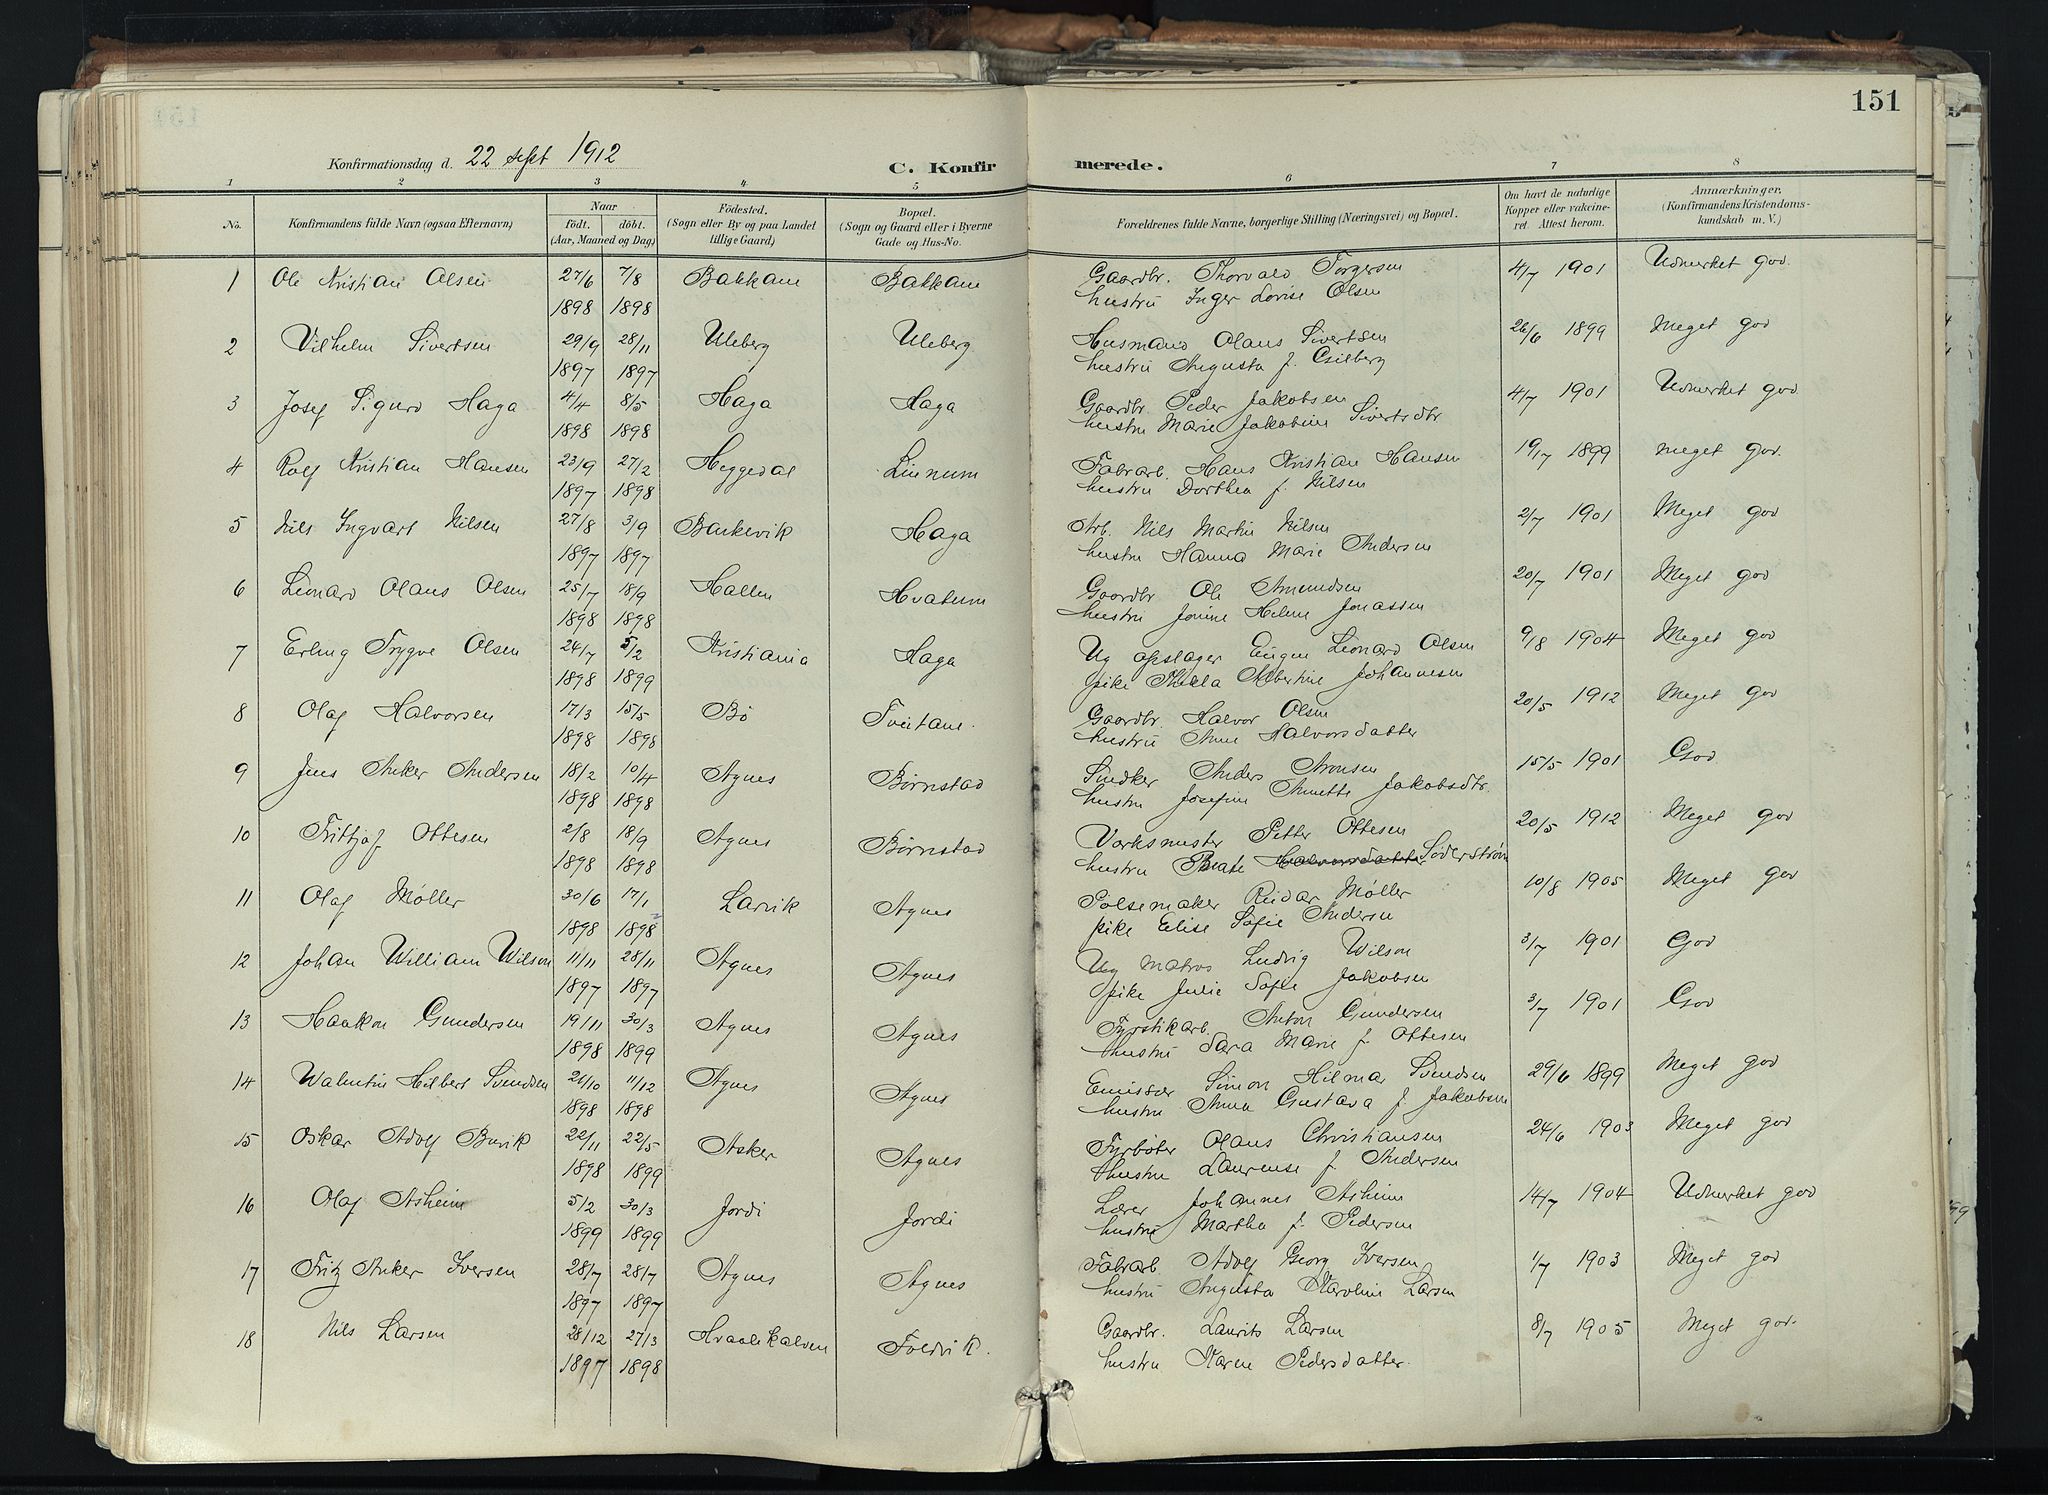 151
Konfirmationsdag d. 22 sept 1912
C. Konfirmerede.
1 2 3 4 5 6 7 8
No. Konfirmandens fulde Navn (ogsaa Efternavn) Naar födt. döbt. (Aar, Maaned og Dag) Födested. (Sogn eller By og paa Landet tillige Gaard) Bopæl. (Sogn og Gaard eller i Byerne Gade og Hus-No. Forældrenes fulde Navne, borgerlige Stilling (Næringsvei) og Bopæl. Om havt de naturlige Kopper eller vakcineret. Attest herom. Anmærkninger. (Konfirmandens Kristendomskundskab m. V.)
1 Ole Kristian Olsen 27/6 7/8 Bakkane Bakkane Gaardbr. Thorvald Torgersen 4/7 1901 Udmerket god
1898 1898 hustru Inger Lovise Olsen
2 Vilhelm Sivertsen 29/9 28/11 Uleberg Uleberg Husmand Olaus Sivertsen 26/6 1899 Meget god
1897 1897 hustru Augusta f.
3 Josef Sigurd Haga 4/4 8/5 Haga Haga Gaardbr. Peder Jakobsen 4/7 1901 Udmerket god.
1898 1898 hustru Marie Jakobine Sivertsdtr
4 Rolf Kristian Hansen 23/9 27/2 Heggedal Linnum Fabrarb. Hans Kristian Hansen 19/7 1899 meget god.
1897 1898 hustru Dorthea f. Nilsen
5 Nils Ingvart Nilsen 27/8 3/9 Barkevik Haga Arb. Nils Martin Nilsen 2/7 1901 Meget god
1897 1897 hustru Hanna Marie Andersen
6 Leonard Olaus Olsen 25/7 18/9 Hallen Hvatum Gaardbr Ole Amundsen 20/7 1901 Meget god
1898 1898 hustru Jonine Helene Jonassen
7 Erling Trygve Olsen 24/7 5/2 Kristiania Haga Ug opslager Eugen Leonard Olsen 9/8 1904 Meget god
1898 1899 pike Thekla Albertine Johannesen
8 Olaf Halvorsen 17/3 15/5 Bö Tveitane. Gaardbr. Halvor Olsen 20/5 1912 Meget god
1898 1898 hustru Anne Halvorsdatter
9 Jens Anker Andersen 18/2 10/4 Agnes Børnstad Snedker Anders Aronsen 15/5 1901 God
1898 1898 hustru Josefine Annette Jakobsdtr.
10 Frittjof Ottesen 2/8 18/9 Agnes Børnstad Verksmester Petter Ottesen 20/5 1912 Meget god
1898 1898 hustru Beate Halvorsdatter Söderström
11 Olaf Møller 30/6 17/1 Larvik Agnes Pølsemaker Reidar Møller 10/8 1905 Meget god
1898 1898 pike Elise Sofie Andersen
12 Johan William Wilson 11/11 28/11 Agnes Agnes Ug matros Ludvig Wilson 3/7 1901 God
1897 1897 pike Julie Sofie Jakobsen
13 Haakon Gundersen 19/11 30/3 Agnes Agnes Fyrstikarb. Anton Gundersen 3/7 1901 God
1898 1899 hustru Sara Marie f. Ottesen
14 Valentin Hilbert Svendsen 26/10 11/12 Agnes Agnes Emissær Simon Hilmar Svendsen 29/6 1899 Meget god
1898 1898 hustru Anna Gustava f. Jakobsen
15 Oskar Adolf Burik 22/11 22/5 Asker Agnes Fyrbøter Olaus Christiansen 24/6 1903 Meget god
1898 1899 hustru Laurense f. Andersen
16 Olaf Asheim 5/2 30/3 Jordi Jordi Lærer Johannes Asheim 14/7 1904 Udmerket god
1899 1899 hustru Martha f. Pedersen
17 Fritz Anker Iversen 28/7 28/7 Agnes Agnes Fabrarb. Adolf Georg Iversen 1/7 1903 Meget god
1897 1897 hustru Augusta Karoline Larsen
18 Nils Larsen 28/12 27/3 Hvaalekalven Foldvik. Gaardbr. Laurits Larsen 8/7 1905 Meget god.
1897 1898 hustru Karen Pedersdatter.